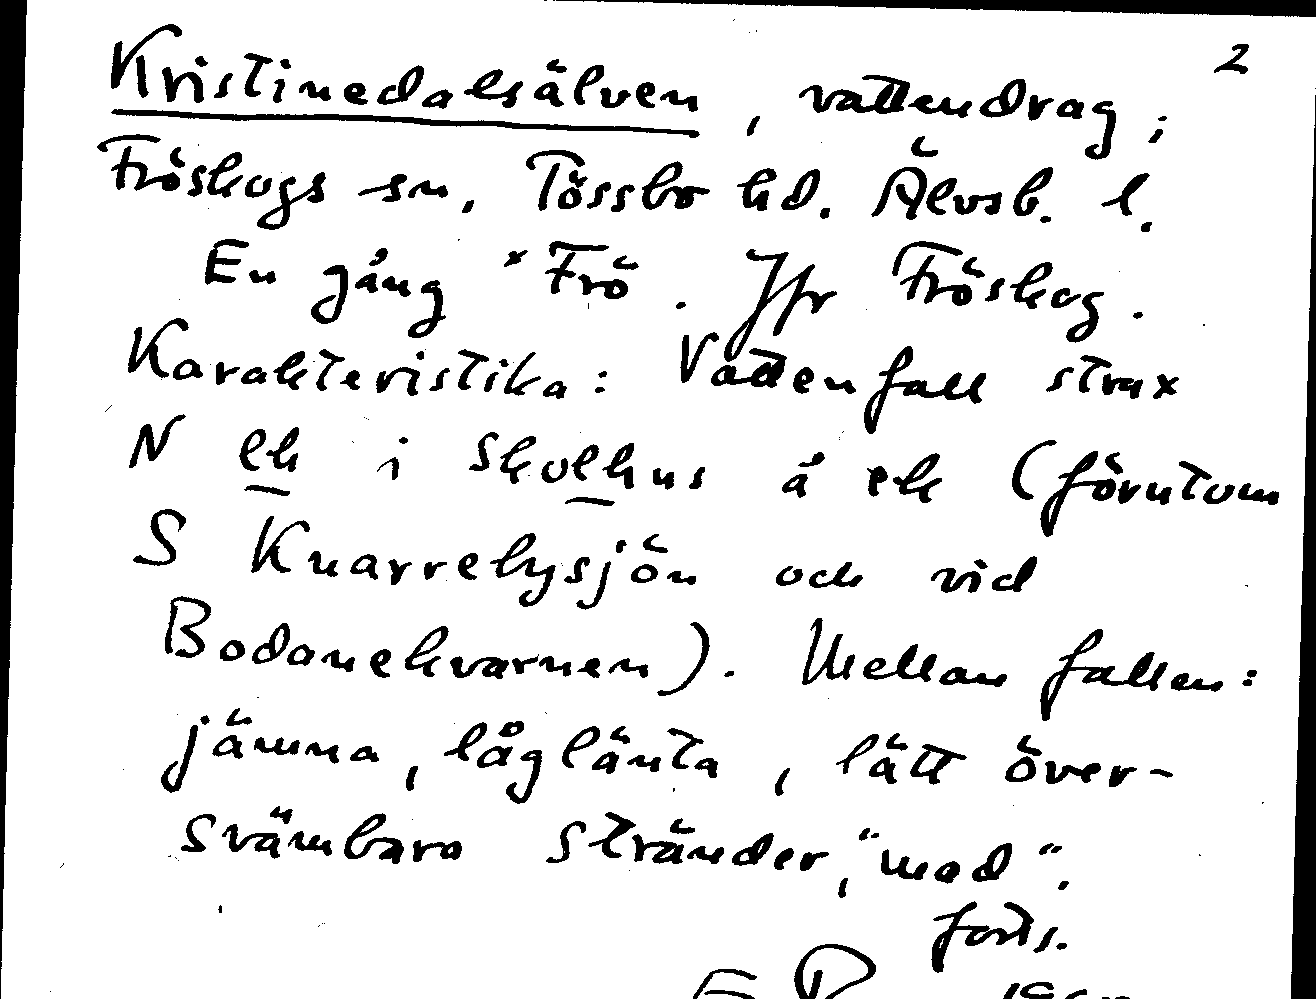 2
Kristinedalsälven, vattendrag,
Fröskogs sn, Tössbo hd. Älvsb. l.
En gång *Frö. Jfr Fröskog.
Karakteristika: Vattenfall strax
N ek i Skolhus å ek (förutom
S Knarrebysjön och vid
Bodanekvarnen). Mellan fallen:
jämna, låglänta, lätt över-
svämbara stränder, "mad".
forts.